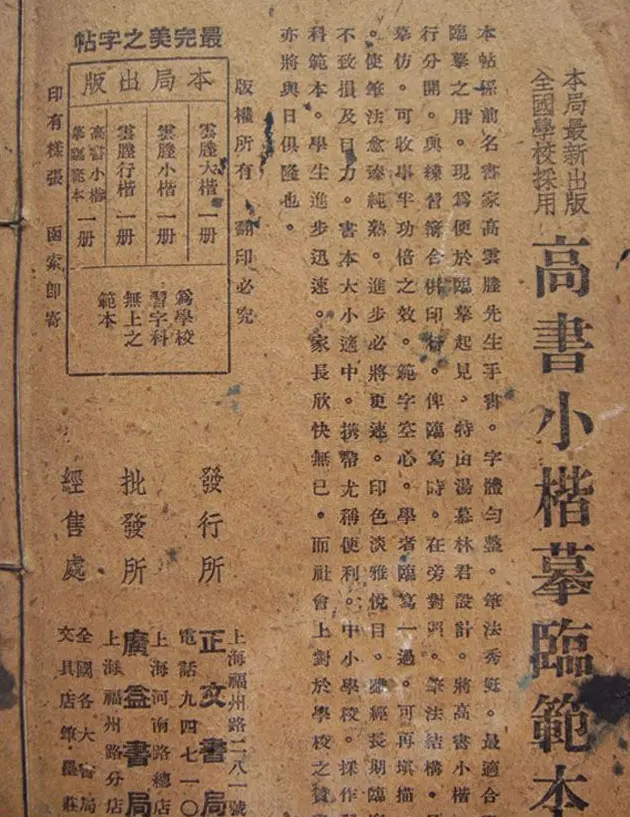 本局最新出版
全國學校採用
高書小楷摹臨範本
本帖係前名書家高雲塍先生手書。字體勻整。筆法秀娗。最適合
臨摹之用。現爲便於臨摹起見、特由湯慕林君設計。將高書小楷
行分開。與練習簿合併印行。俾臨寫時。在旁對照。筆法結構。
摹仿。可收事半功倍之效。範字空心。學者臨寫一過。可再填描
。使筆法愈臻純熟。進步必將更速。印色淡雅悅目。雖經長期臨
不致損及目力。書本大小適中。攜帶尤稱便利。中小學校。採作
科範本。學生進步迅速。家長欣快無已。而社會上對於學校之贊
亦將與日俱隆也。
版權所有 翻印必究
最完美之字帖
本局出版
雲塍大楷 一册
雲塍小楷 一册
雲塍行楷 一册
高書小楷摹臨範本 一册
爲學校
習字科
無上之
範本
印有樣張 函索即寄
發行所
上海福州路二八一號
正文書局
電話九四七一〇
批發所
上海河南路總店
廣益書局
上海福州路分店
經售處
全國各大書局
文具店筆墨莊